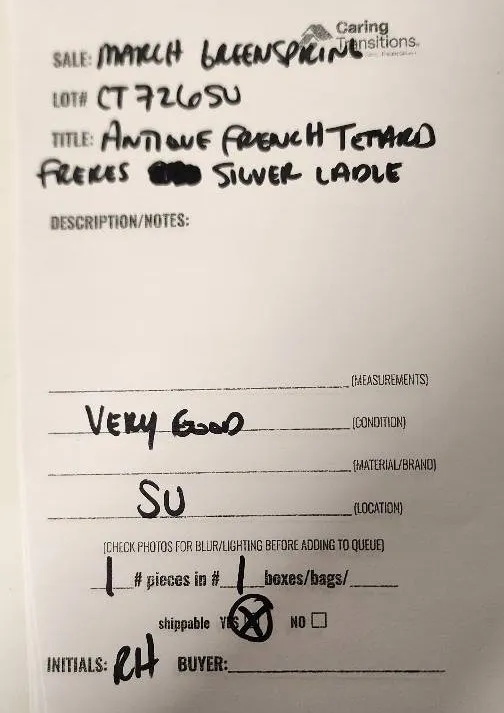 Caring
Transitions
SALE: MARCH GREENSPRING
LOT# CT726SU
TITLE: ANTIQUE FRENCH TETARD
FRERES SILVER LADLE
DESCRIPTION/NOTES:
(MEASUREMENTS)
VERY GOOD (CONDITION)
(MATERIAL/BRAND)
SU (LOCATION)
(CHECK PHOTOS FOR BLUR/LIGHTING BEFORE ADDING TO QUEUE)
1 # pieces in # 1 boxes/bags/
shippable YES NO
INITIALS: RH BUYER: